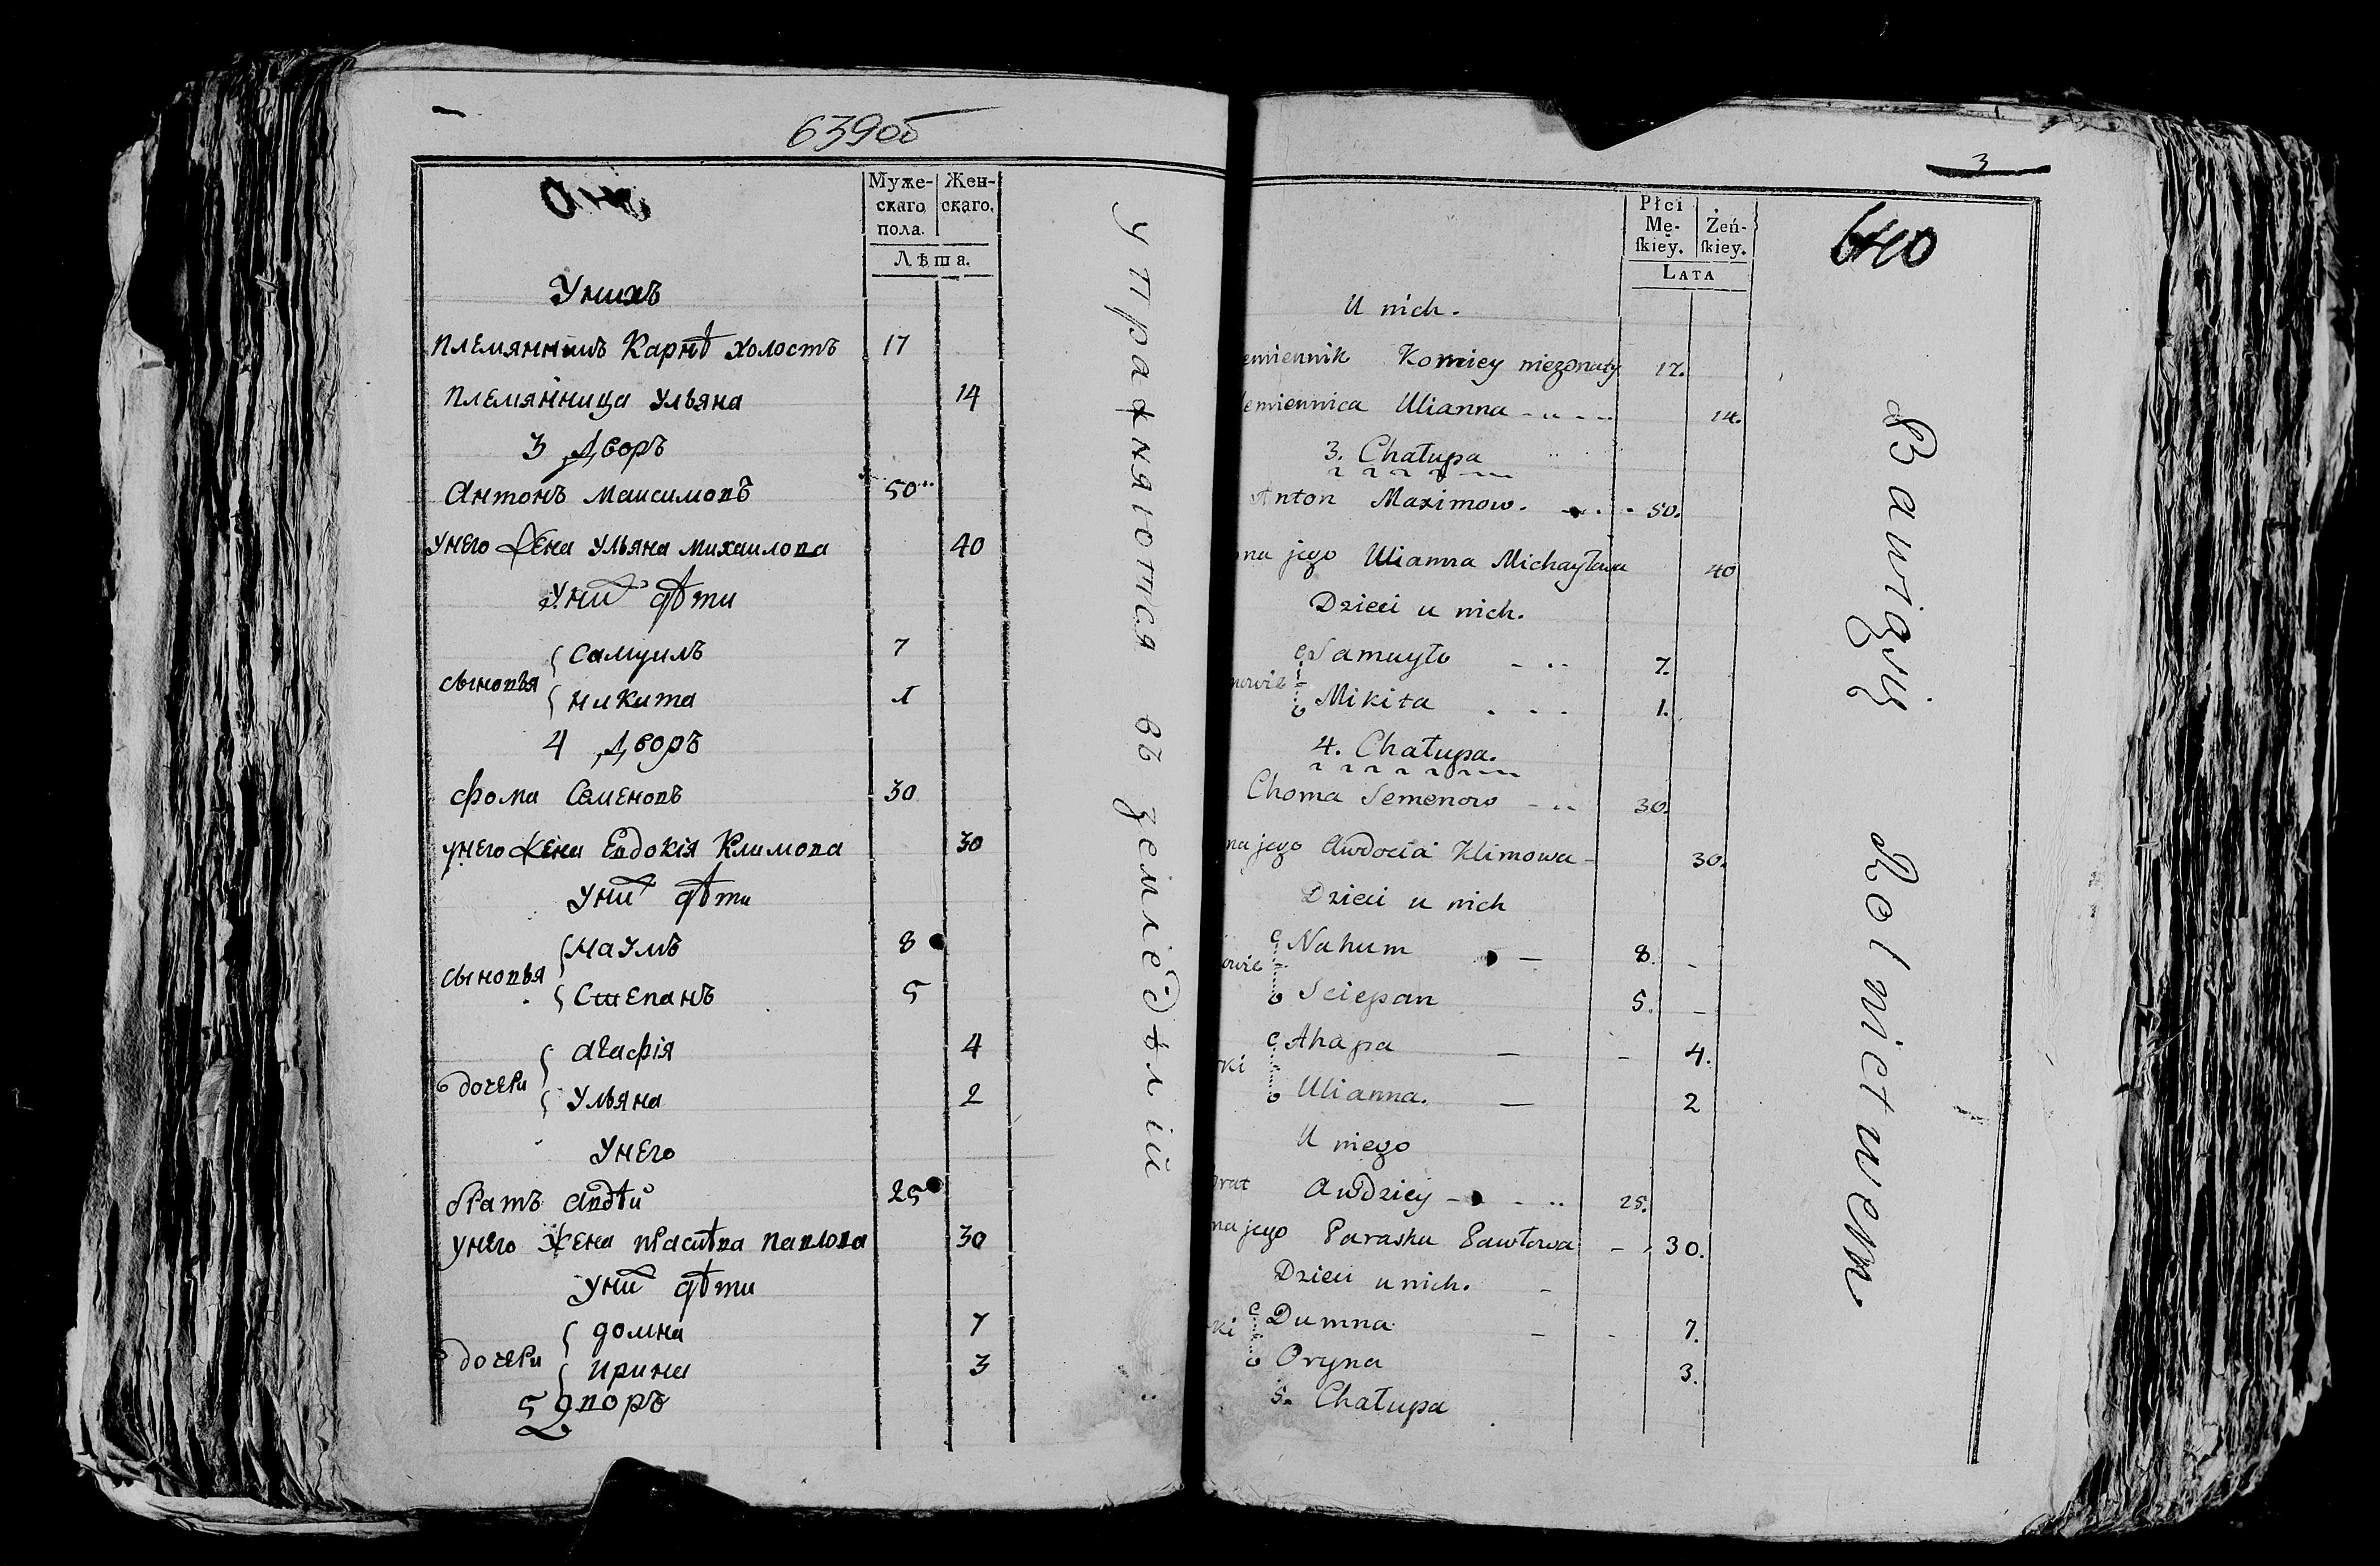 639об
Муже-
скаго
пола.
Жен-
скаго.
Лѣта.
Унихъ
племянникъ Карнѣ холостъ 17
племянница Ульяна 14
3 Дворъ
Антонъ Максимовъ 50
унего жена Ульяна Михаилова 40
Уних дѣти
сыновья
Самуилъ 7
никита 1
4 Дворъ
фома Семеновъ 30
унего жена Евдокія Климова 30
Уних дѣти
сыновья
наумъ 8
Степанъ 5
дочери
Агафія 4
Ульяна 2
Унего
братъ Авдѣй 25
унего жена Прасковя Павлова 30
Уних дѣти
дочери
домна 7
Ирина 3
5 дворъ
упражняются въ земледѣліи
3
640
Płci
Mę-
ſkiey.
Żeń-
ſkiey.
LATA
U nich.
emiennik Korniey niezonaty 17.
emiennica Ulianna 14.
3. Chałupa
Anton Maximow. 50.
na jego Ulianna Michayłowa 40
Dzieci u nich.
nowie
Samuyło 7.
Mikita 1.
4. Chałupa.
Choma Semenow 30.
na jego Awdocia Klimowa 30.
Dzieci u nich
owie
Nahum 8.
Sciepan 5.
rki
Ahapa 4.
Ulianna. 2
U niego
brat Awdziey 25.
na jego Paraska Pawłowa 30.
Dzieci u nich.
ki
Dumna 7.
Oryna 3.
5. Chałupa
Bawiący Rolnictwem